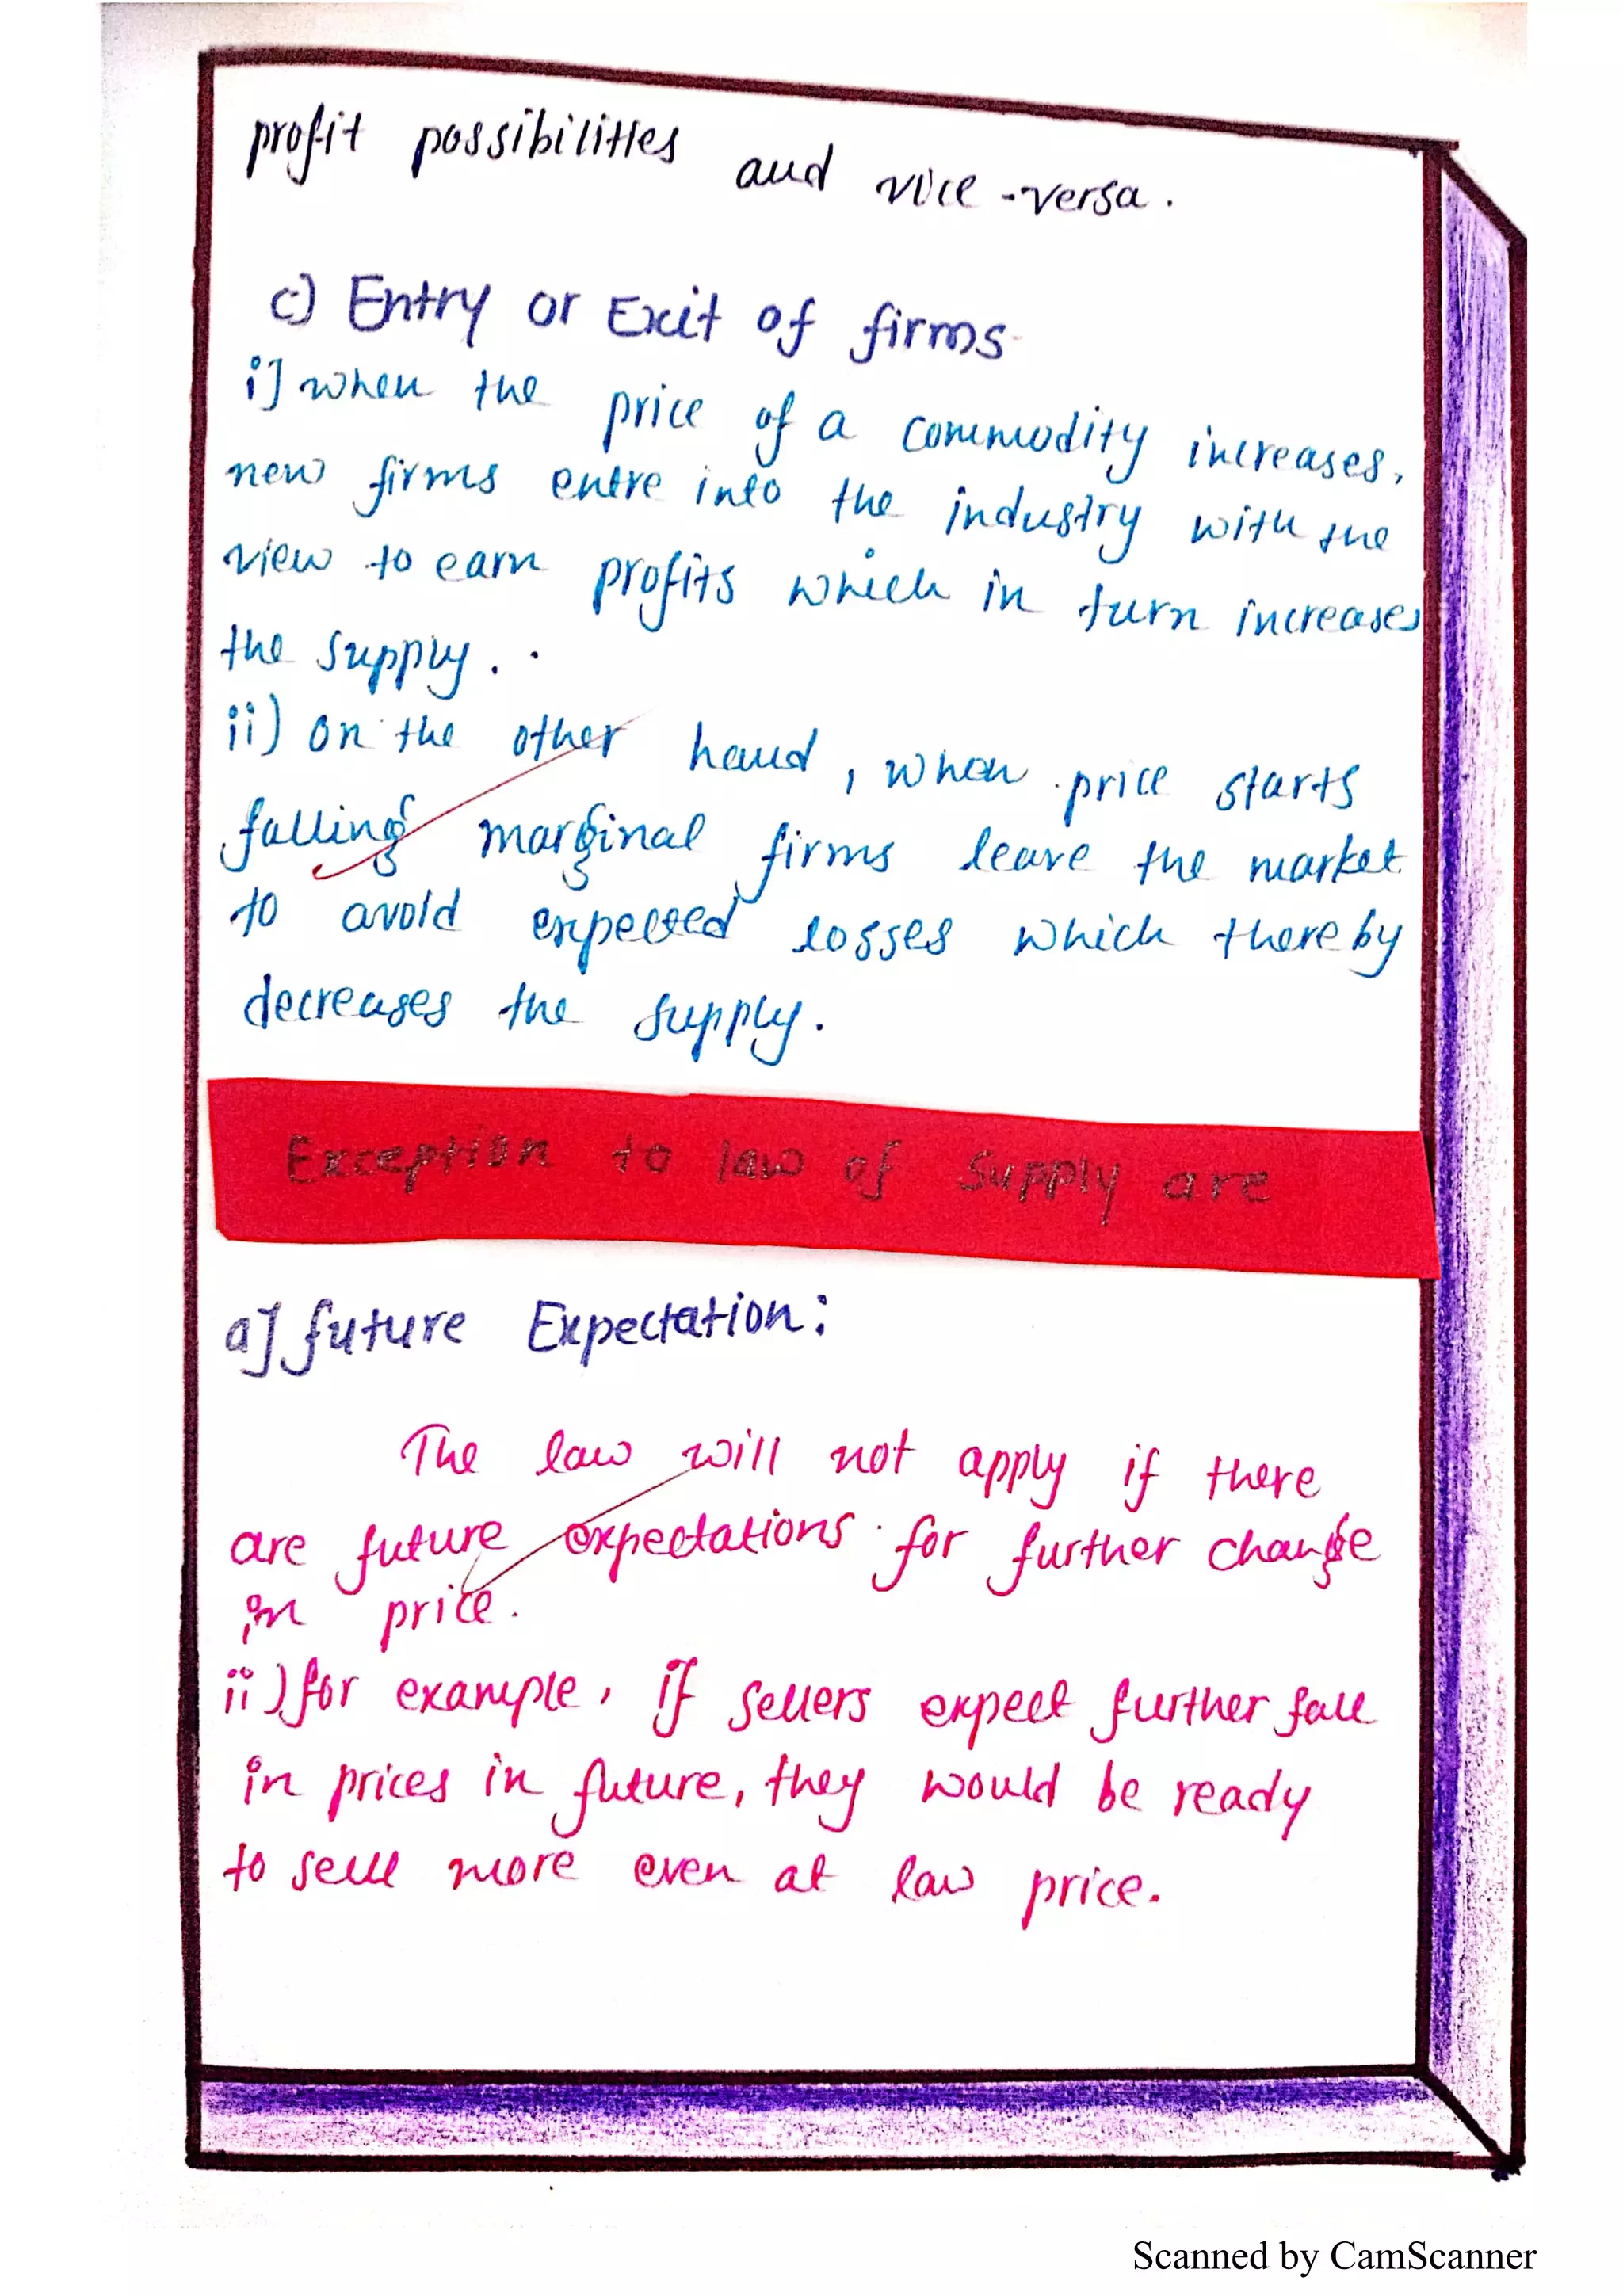 profit possibilities and vice-versa.
c) Entry or Exit of firms
i] when the price of a commodity increases,
new firms entre into the industry with the
view to earn profits which in turn increases
the supply..
ii) on the other hand, when price starts
falling marginal firms leave the market
to avoid expected losses which thereby
decreases the supply.
Exception to law of supply are
a] future Expectation:
The law will not apply if there
are future expectations for further change
in price.
ii) for example, if sellers expect further fall
in prices in future, they would be ready
to sell more even at law price.
Scanned by CamScanner